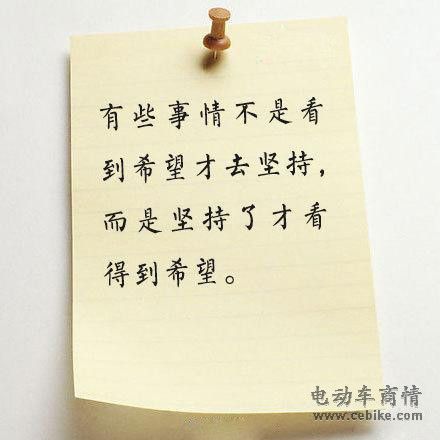 有些事情不是看
到希望才去坚持，
而是坚持了才看
得到希望。
电动车商情
www.cebike.com